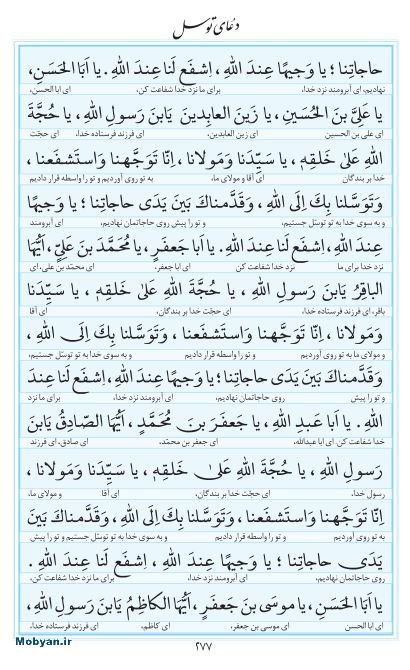 دعای توسل
حاجاتِنا ؛ یا وَجیهًا عِندَ اللهِ ، اِشفَع لَنا عِندَ اللهِ. یا اَبَا الحَسَنِ،
نهادیم، ای آبرومند نزد خدا، برای ما نزد خدا شفاعت کن. ای ابا الحسن،
یا عَلِیَّ بنَ الحُسَینِ ، یا زَینَ العابِدینَ یَابنَ رَسولِ اللهِ ، یا حُجَّةَ
ای علی بن الحسین ای زین العابدین، ای فرزند فرستاده خدا، ای حجّت
اللهِ عَلیٰ خَلقِهٖ ، یا سَیِّدَنا وَمَولانا ، اِنّا تَوَجَّهنا وَاستَشفَعنا ،
خدا بر بندگان ای آقا و مولای ما، به تو روی آوردیم و تو را واسطه قرار دادیم
وَتَوَسَّلنا بِكَ اِلَی اللهِ ، وَقَدَّمناكَ بَینَ یَدَی حاجاتِنا ؛ یا وَجیهًا
و به سوی خدا به تو توسّل جستیم، و تو را پیش روی حاجاتمان نهادیم، ای آبرومند
عِندَ اللهِ، اِشفَع لَنا عِندَ اللهِ. یا اَبا جَعفَرٍ ، یا مُحَمَّدَ بنَ عَلِیٍّ، اَیُّهَا
نزد خدا برای ما نزد خدا شفاعت کن ای ابا جعفر، ای محمّد بن علی، ای
الباقِرُ یَابنَ رَسولِ اللهِ ، یا حُجَّةَ اللهِ عَلیٰ خَلقِهٖ ، یا سَیِّدَنا
باقر، ای فرزند فرستاده خدا، ای حجّت خدا بر بندگان، ای آقا
وَمَولانا ، اِنّا تَوَجَّهنا وَاستَشفَعنا ، وَتَوَسَّلنا بِكَ اِلَی اللهِ ،
و مولای ما به تو روی آوردیم و تو را واسطه قرار دادیم و به سوی خدا به تو توسّل جستیم،
وَقَدَّمناكَ بَینَ یَدَی حاجاتِنا ؛ یا وَجیهًا عِندَ اللهِ، اِشفَع لَنا عِندَ
و تو را پیش روی حاجاتمان نهادیم، ای آبرومند نزد خدا، برای ما نزد
اللهِ. یا اَبا عَبدِ اللهِ ، یا جَعفَرَ بنَ مُحَمَّدٍ ، اَیُّهَا الصّادِقُ یَابنَ
خدا شفاعت کن. ای ابا عبدالله، ای جعفر بن محمّد، ای صادق، ای فرزند
رَسولِ اللهِ ، یا حُجَّةَ اللهِ عَلیٰ خَلقِهٖ ، یا سَیِّدَنا وَمَولانا ،
رسول خدا، ای حجّت خدا بر بندگان، ای آقا و مولای ما،
اِنّا تَوَجَّهنا وَاستَشفَعنا ، وَتَوَسَّلنا بِكَ اِلَی اللهِ ، وَقَدَّمناكَ بَینَ
به تو روی آوردیم و تو را واسطه قرار دادیم و به سوی خدا به تو توسّل جستیم و تو را پیش
یَدَی حاجاتِنا ؛ یا وَجیهًا عِندَ اللهِ ، اِشفَع لَنا عِندَ اللهِ .
روی حاجاتمان نهادیم، ای آبرومند نزد خدا، برای ما نزد خدا شفاعت کن.
یا اَبَا الحَسَنِ، یا موسَی بنَ جَعفَرٍ، اَیُّهَا الکاظِمُ یَابنَ رَسولِ اللهِ،
ای ابا الحسن ای موسی بن جعفر، ای کاظم، ای فرزند فرستاده خدا
۲۷۷
Mobyan.ir